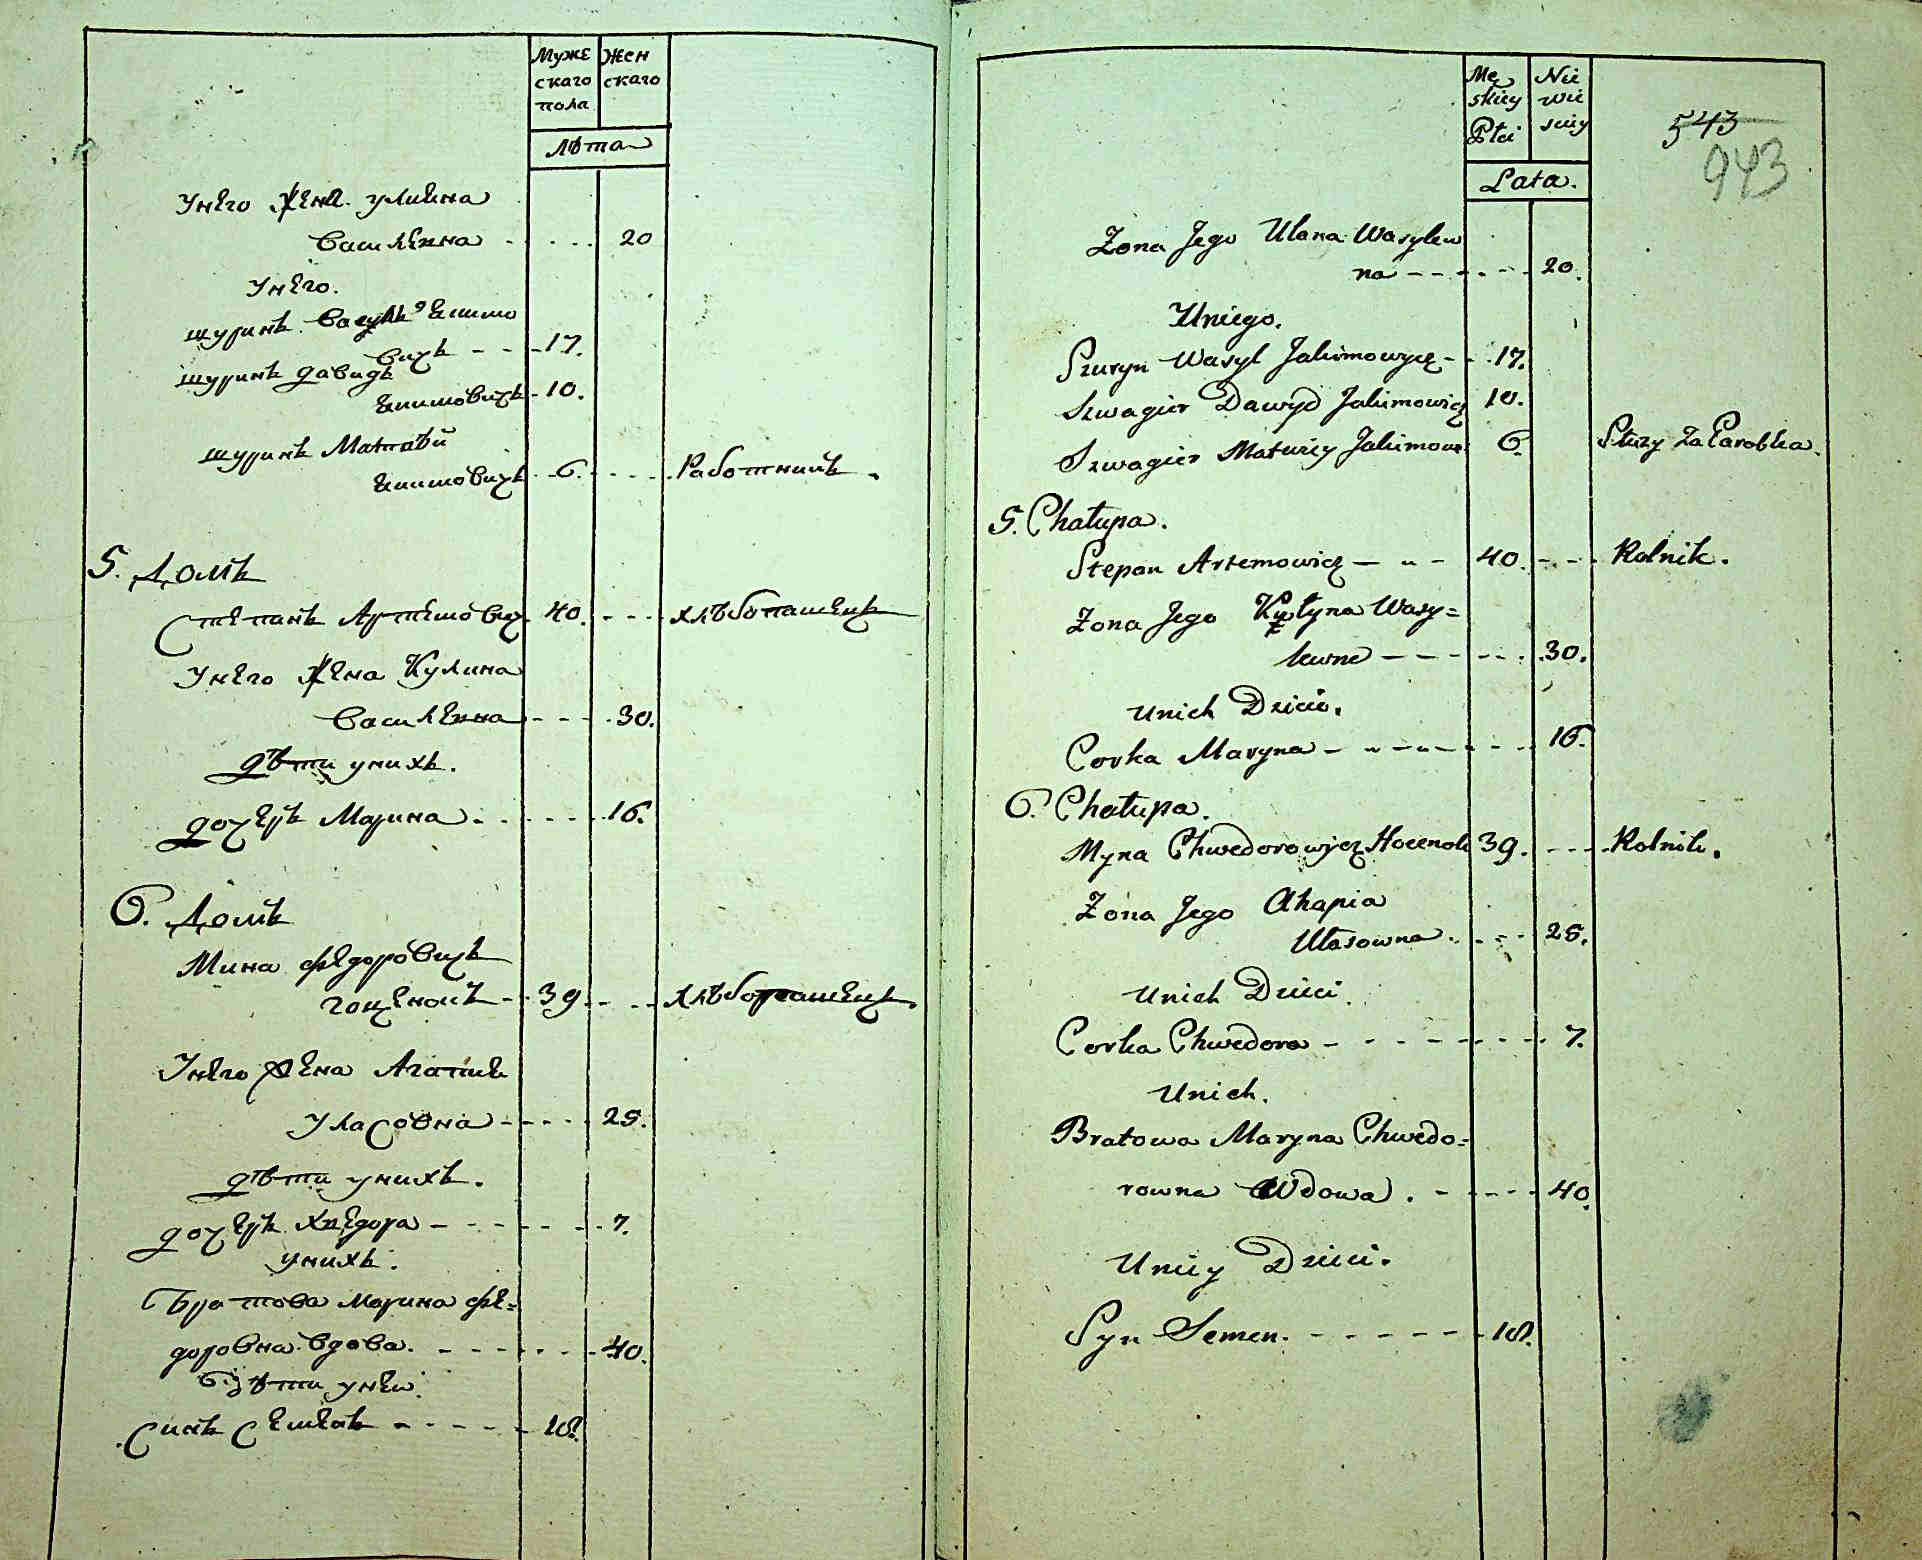 Муже Жен
скаго скаго
пола
Лѣта
Унего Жена Улияна
Василевна 20
Унего.
шуринъ Василь Якимо
вичъ 17.
шуринъ Давидъ
Якимовичъ 10.
шуринъ Матвѣй
Якимовичъ 6. Работникъ.
5. Домъ
Степанъ Артемович 40. хлѣбопашецъ
Унего Жена Кулина
Василевна 30.
дѣти унихъ.
дочеръ Марина 16.
6. Домъ
Мина Федоровичъ
гоценокъ 39. хлѣбопашецъ.
Унего Жена Агапия
Уласовна 25.
дѣти унихъ.
дочеръ Хведора 7.
унихъ.
Братова Марина фе=
доровна вдова. 40.
дѣти унеи.
Синъ Семенъ 18.
Mę Nie
skiey wie
Płci sciey
Lata.
543
943
Zona Jego Ulana Wasylew
na 20.
Uniego.
Szuryn Wasyl Jakimowicz 17.
Szwagier Dawyd Jakimowicz 10.
Szwagier Matwiey Jakimow 6. Służy Za Parobka.
5. Chałupa.
Stepan Artemowicz 40. Rolnik.
Zona Jego Kulyna Wasy=
lewne 30.
Unich Dzieci.
Corka Maryna 16.
6. Chałupa.
Myna Chwedorowicz Hocenok 39. Rolnik.
Zona Jego Ahapia
Ułasowna 25.
Unich Dzieci
Corka Chwedora 7.
Unich.
Bratowa Maryna Chwedo=
rowna Wdowa. 40.
Uniey Dzieci.
Syn Semen. 18.